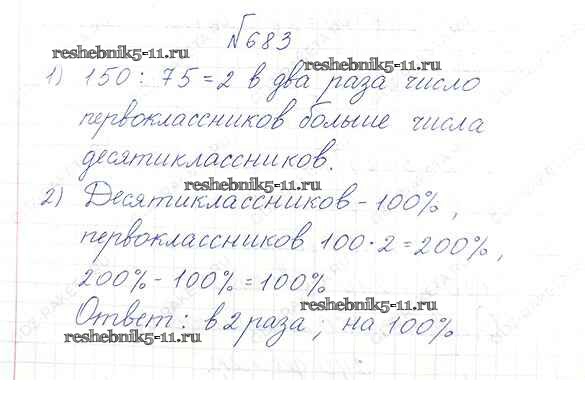 №683
reshebnik5-11.ru
reshebnik5-11.ru
1) 150 : 75 = 2 в два раза число
первоклассников больше числа
десятиклассников.
reshebnik5-11.ru
2) Десятиклассников - 100%,
первоклассников 100·2=200%,
200% - 100% = 100%
reshebnik5-11.ru
Ответ: в 2 раза; на 100%
reshebnik5-11.ru